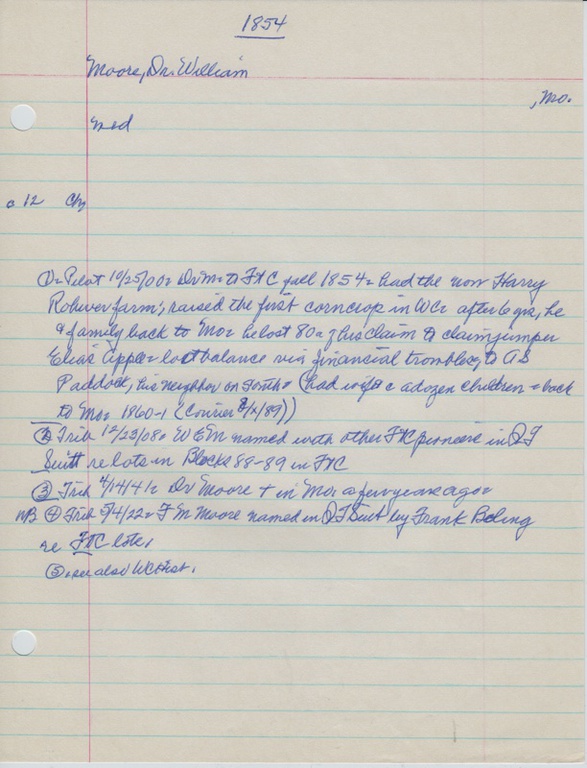 1854
Moore, Dr. William
, Mo.
Med
c 12 Ch
① Pilot 10/25/00: Dr M to FtC fall 1854 = had the now Harry
Rohwer farm; raised the first corn crop in WC: after 6 yrs, he
& family back to Mo: he lost 80 a of his claim to claimjumper
Elias Apple = lost balance via financial troubles, to AS
Paddock, his neighbor on South = (had wife & a dozen children = back
to Mo: 1860-1 (Courier 8/ /89))
② Trib 12/23/08: WEM named with other FtC pioneers in QT
Suit re lots in Blocks 88-89 in FtC
③ Trib 4/14/41: Dr Moore + in Mo: a few years ago =
NB ④ Trib 5/4/22: FM Moore named in QT Suit by Frank Boling
re FtC lots,
⑤ see also WC Hist.